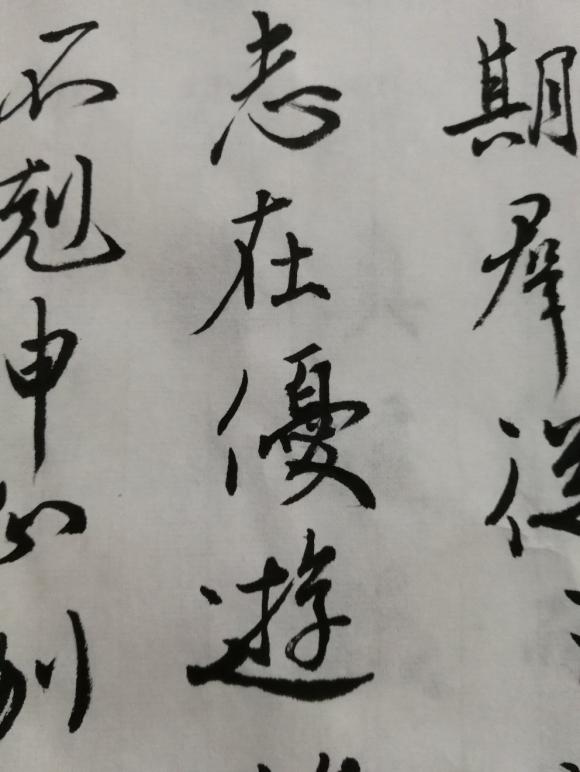 期羣從
志在優遊
不剋申
別